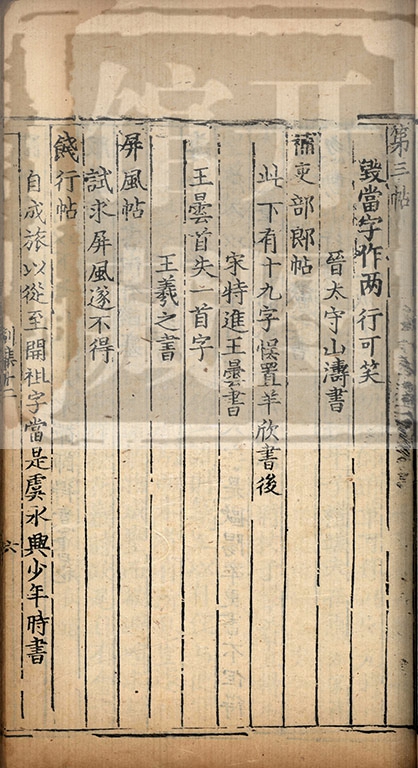 第三帖
毀當字作两行可笑
晉太守山濤書
補吏部郎帖
此下有十九字悮置羊欣書後
宋特進王曇書
王曇首失一首字
王羲之書
屏風帖
試求屏風遂不得
餞行帖
自成旅以從至開祖字當是虞永興少年時書
六